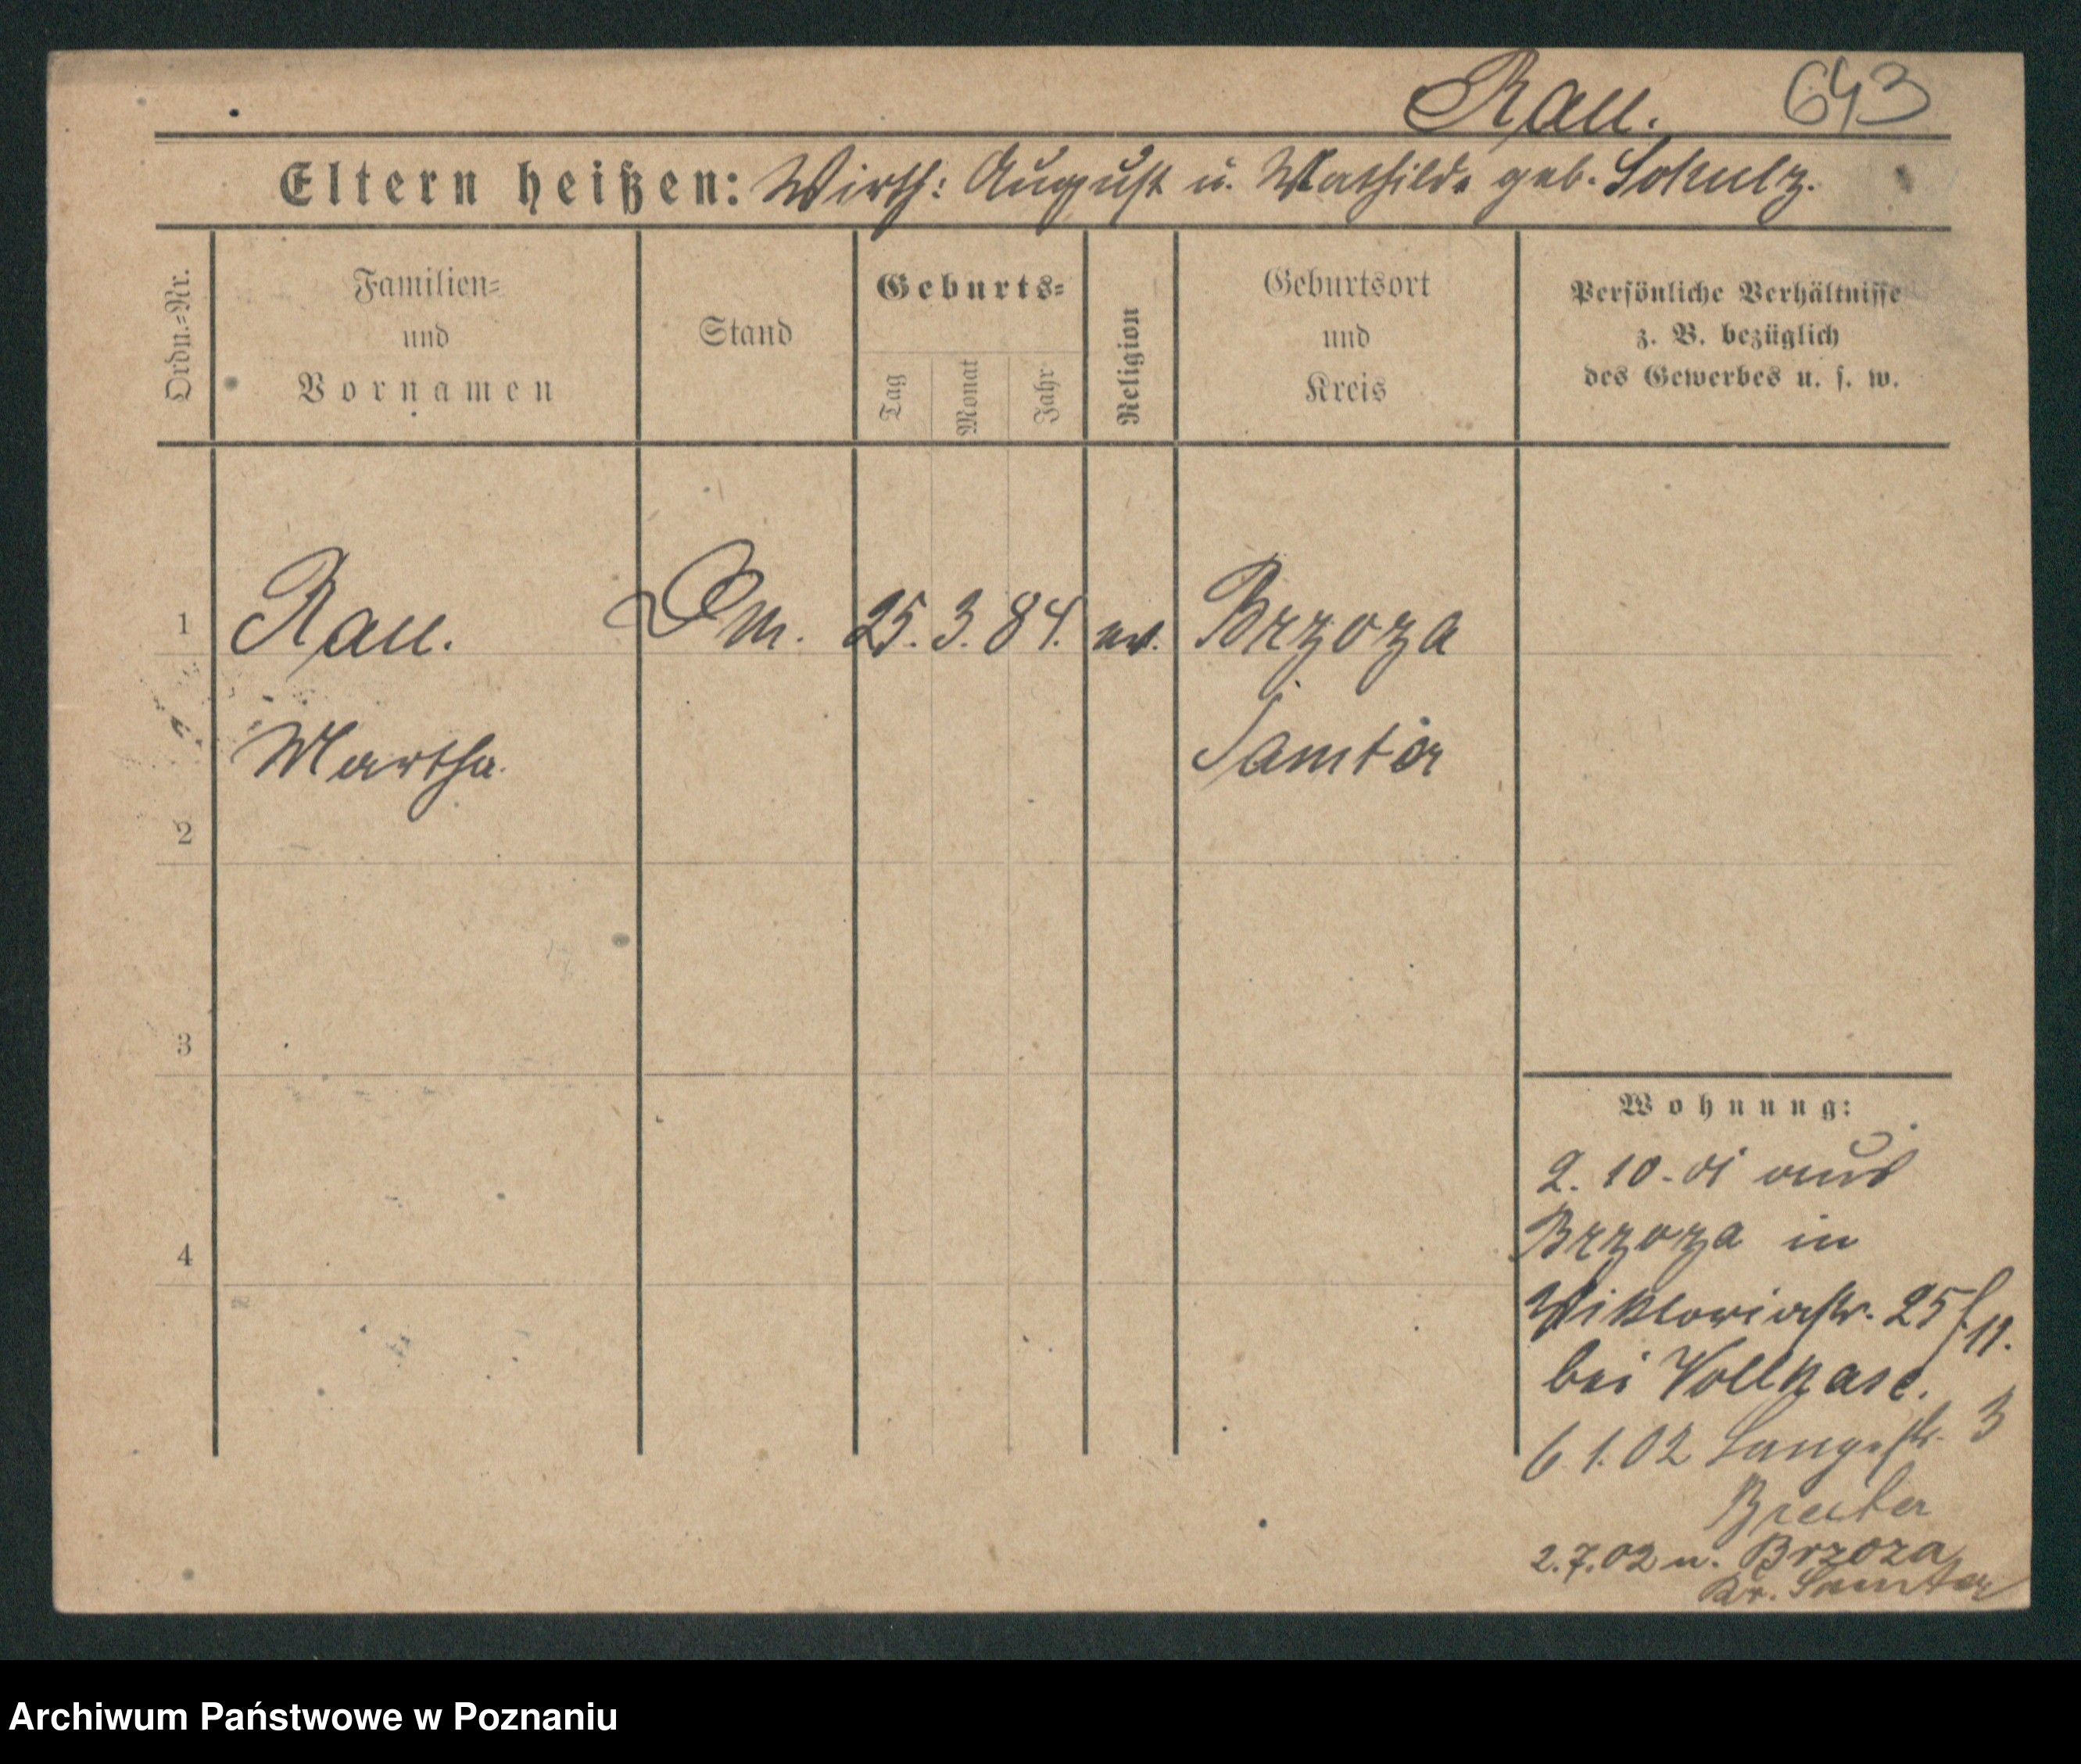 Rau. 643
Eltern heißen: Wirth: August u. Mathilde geb. Schulz.
Ordn.=Nr.
Familien=
und
Vornamen
Stand
Geburts=
Tag
Monat
Jahr
Religion
Geburtsort
und
Kreis
Persönliche Verhältnisse
z. B. bezüglich
des Gewerbes u. s. w.
1 Rau. Dm. 25. 3. 84. ev. Brzoza
Martha. Samter
2
3
4
Wohnung:
2. 10. 01 aus
Brzoza in
Viktoriastr. 25 II.
bei Vollhase.
6 1. 02 Langestr. 3
2.7.02 n. Brzoza
Kr. Samter
Archiwum Państwowe w Poznaniu